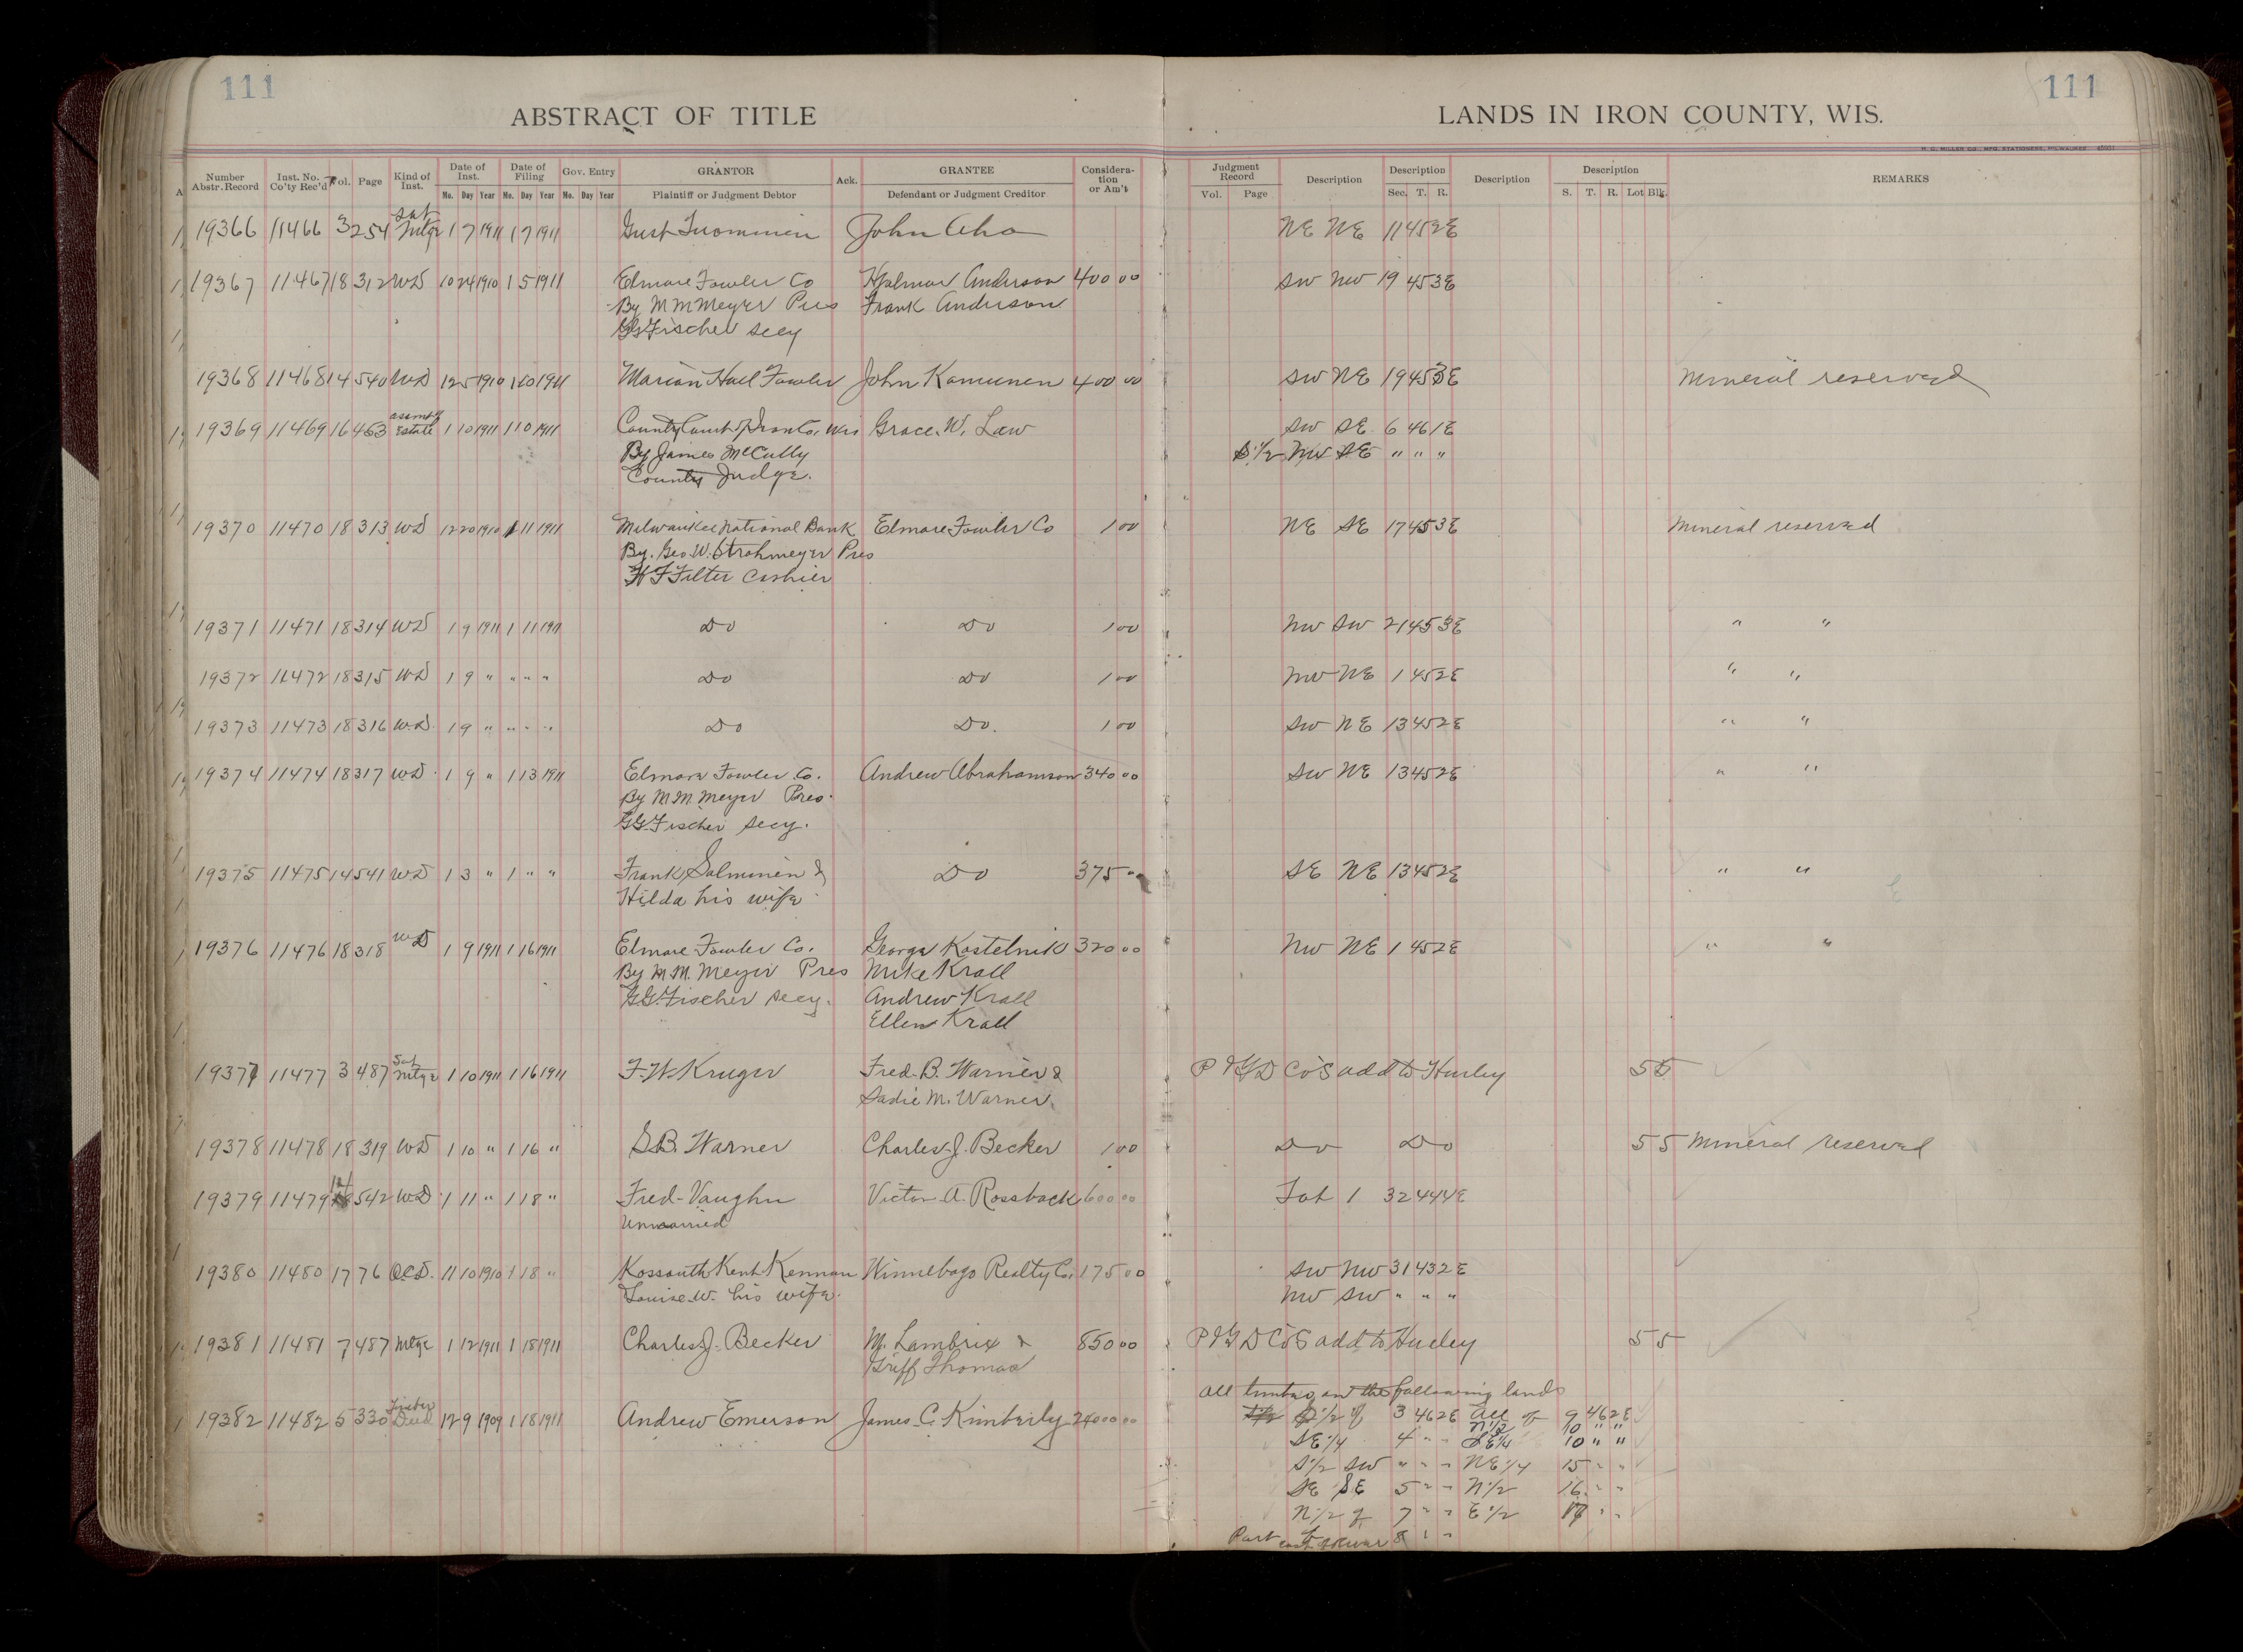 111
111
ABSTRACT OF TITLE
LANDS IN IRON COUNTY, WIS.
H. C. MILLER CO., MFG. STATIONERS, MILWAUKEE
Number Abstr. Record Inst. No. Co'ty Rec'd Vol. Page Kind of Inst. Date of Inst. Date of Filing Gov. Entry GRANTOR Ack. GRANTEE Considera- tion or Am't Judgment Record Description Description Description Description REMARKS
No. Day Year No. Day Year No. Day Year Plaintiff or Judgment Debtor Defendant or Judgment Creditor Vol. Page Sec. T. R. S. T. R. Lot Blk.
19366 11466 3 254 Sat Mtge 1 7 1911 1 7 1911 Gust Tuominen John Aho NE NE 1 1452E
19367 11467 18 312 WD 10 24 1910 1 5 1911 Elmore Fowler Co Hjalmar Anderson 400 00 SW NW 19 45 3E
By M M Meyer Pres Frank Anderson
GG Fischer Secy
19368 11468 14 540 WD 12 5 1910 1 10 1911 Marion Hall Fowler John Kamunen 400 00 SW NE 19 45 3E Mineral reserved
19369 11469 16 463 assmt of Estate 1 10 1911 1 10 1911 County Court of Iron Co. Wis Grace W. Law SW SE 6 46 1E
By James McCully S 1/2 NW SE " " "
County Judge.
19370 11470 18 313 WD 12 20 1910 1 11 1911 Milwaukee National Bank Elmore Fowler Co 1 00 NE SE 17 45 3E Mineral reserved
By. Geo. W. Strohmeyer Pres
H F Filter Cashier
19371 11471 18 314 WD 1 9 1911 1 11 1911 Do Do 1 00 NW SW 21 45 3E " "
19372 11472 18 315 WD 1 9 " " " " Do Do 1 00 NW NE 1 45 2E " "
19373 11473 18 316 W.D. 1 9 " " " " Do Do. 1 00 SW NE 13 45 2E " "
19374 11474 18 317 WD 1 9 " 1 13 1911 Elmore Fowler Co. Andrew Abrahamson 340 00 SW NE 13 45 2E " "
By M M Meyer Pres.
GG Fischer Secy.
19375 11475 14 541 WD 1 3 " 1 " " Frank Salminen & Do 375 00 SE NE 13 45 2E " "
Hilda his wife
19376 11476 18 318 WD 1 9 1911 1 16 1911 Elmore Fowler Co. George Kostelnik 320 00 NW NE 1 45 2E " "
By M M. Meyer Pres Mike Krall
GG Fischer Secy. Andrew Krall
Ellen Krall
19377 11477 3 487 Sat Mtge 1 10 1911 1 16 1911 F. W. Kruger Fred. B. Warner & P I & D Co's add to Hurley 5 5
Sadie M. Warner
19378 11478 18 319 WD 1 10 " 1 16 " S. B. Warner Charles J. Becker 1 00 Do Do 5 5 Mineral reserved
19379 11479 14 542 WD 1 11 " 1 18 " Fred Vaughn Victor A. Rossback 600 00 Lot 1 32 44 4E
Unmarried
19380 11480 17 76 QCD. 11 10 1910 1 18 " Kossouth Kent Kennan Winnebago Realty Co. 175 00 SW NW 31 43 2E
Louise W. his wife. NW SW " " "
19381 11481 7 487 Mtge 1 12 1911 1 18 1911 Charles J. Becker M. Lambrix & 850 00 P I & D Co's add to Hurley 5 5
Griff Thomas
All timber on the following lands
19382 11482 5 330 Timber Deed 12 9 1909 1 18 1911 Andrew Emerson James C. Kimberly 24000 00 S 1/2 of 3 46 2E All of 9 46 2E
N 1/2 10 " "
SE 1/4 4 " " SE 1/4 10 " "
S 1/2 SW " " " NE 1/4 15 " "
SE SE 5 " " N 1/2 16 " "
N 1/2 of 7 " " E 1/2 17 " "
Part east of River 8 " "